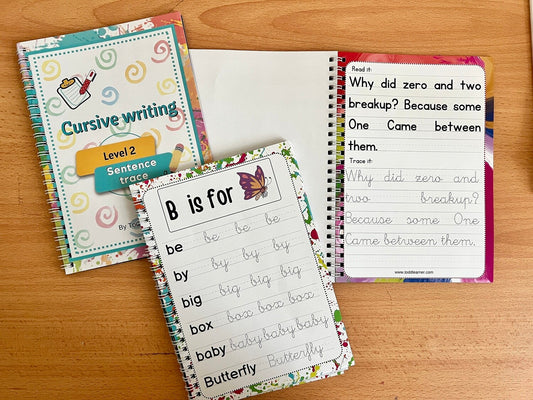 Cursive writing
Level 2
Sentence
trace
By
B is for
be be be be
by by by by
big big big big
box box box box
baby baby baby baby
Butterfly Butterfly
Read it:
Why did zero and two
breakup? Because some
One Came between
them.
Trace it:
Why did zero and
two breakup?
Because some One
Came between them.
www.toddlearner.com